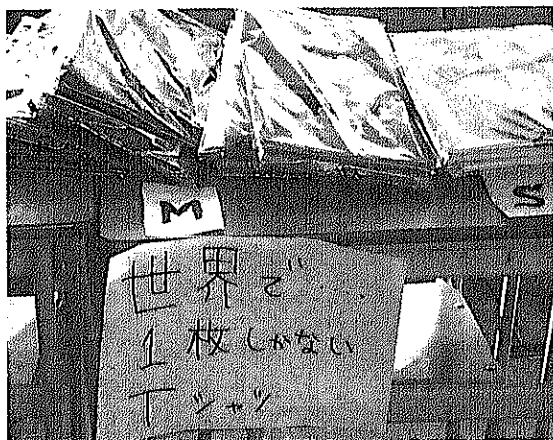 M
S
世界で
1枚しかない
Tシャツ